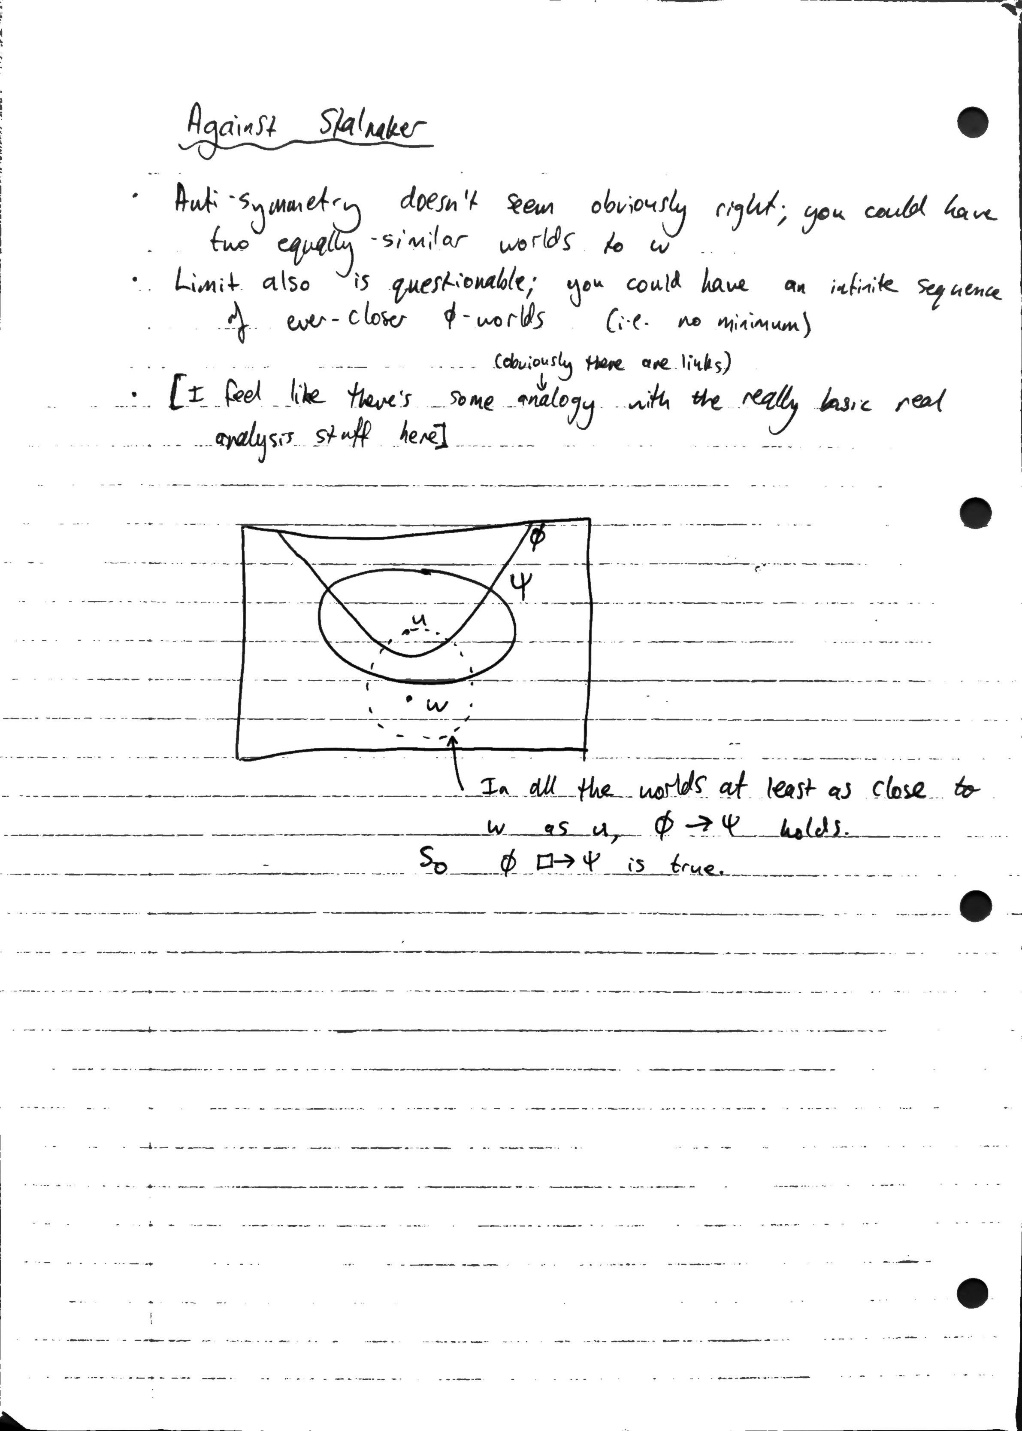 Against Stalnaker
· Anti-symmetry doesn't seem obviously right; you could have
two equally-similar worlds to w
· Limit also is questionable; you could have an infinite sequence
of ever-closer ϕ-worlds (i.e. no minimum)
(obviously there are links)
↓
· [I feel like there's some analogy with the really basic real
analysis stuff here]
ϕ
ψ
u
w
In all the worlds at least as close to
w as u, ϕ → ψ holds.
So ϕ □→ ψ is true.